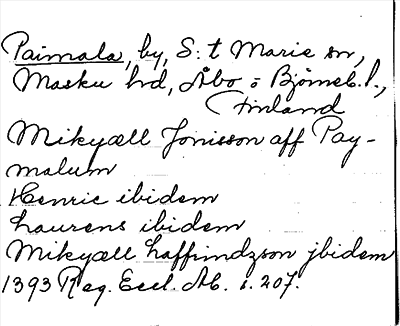 Paimala, by, S:t Marie sn,
Masku hd, Åbo o Björneb. l.,
Finland
Mikyæll Jonisson aff Pay-
malum
Henric ibidem
Laurens ibidem
Mikyæll Laffrindzson jbidem
1393 Reg. Eccl. Ab. s. 207.